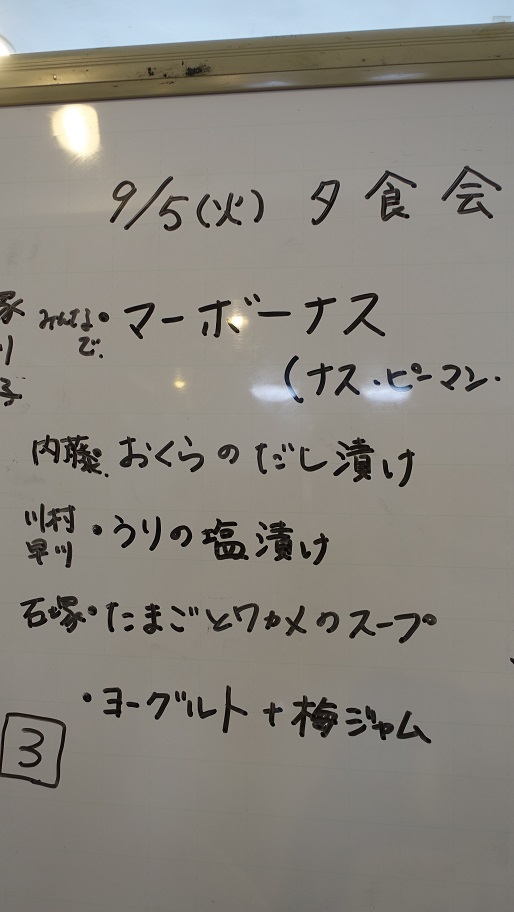 9/5(火) 夕食会
みんなで・マーボーナス
(ナス・ピーマン・
内藤・おくらのだし漬け
川村
早川・うりの塩漬け
石塚・たまごとワカメのスープ
・ヨーグルト+梅ジャム
3